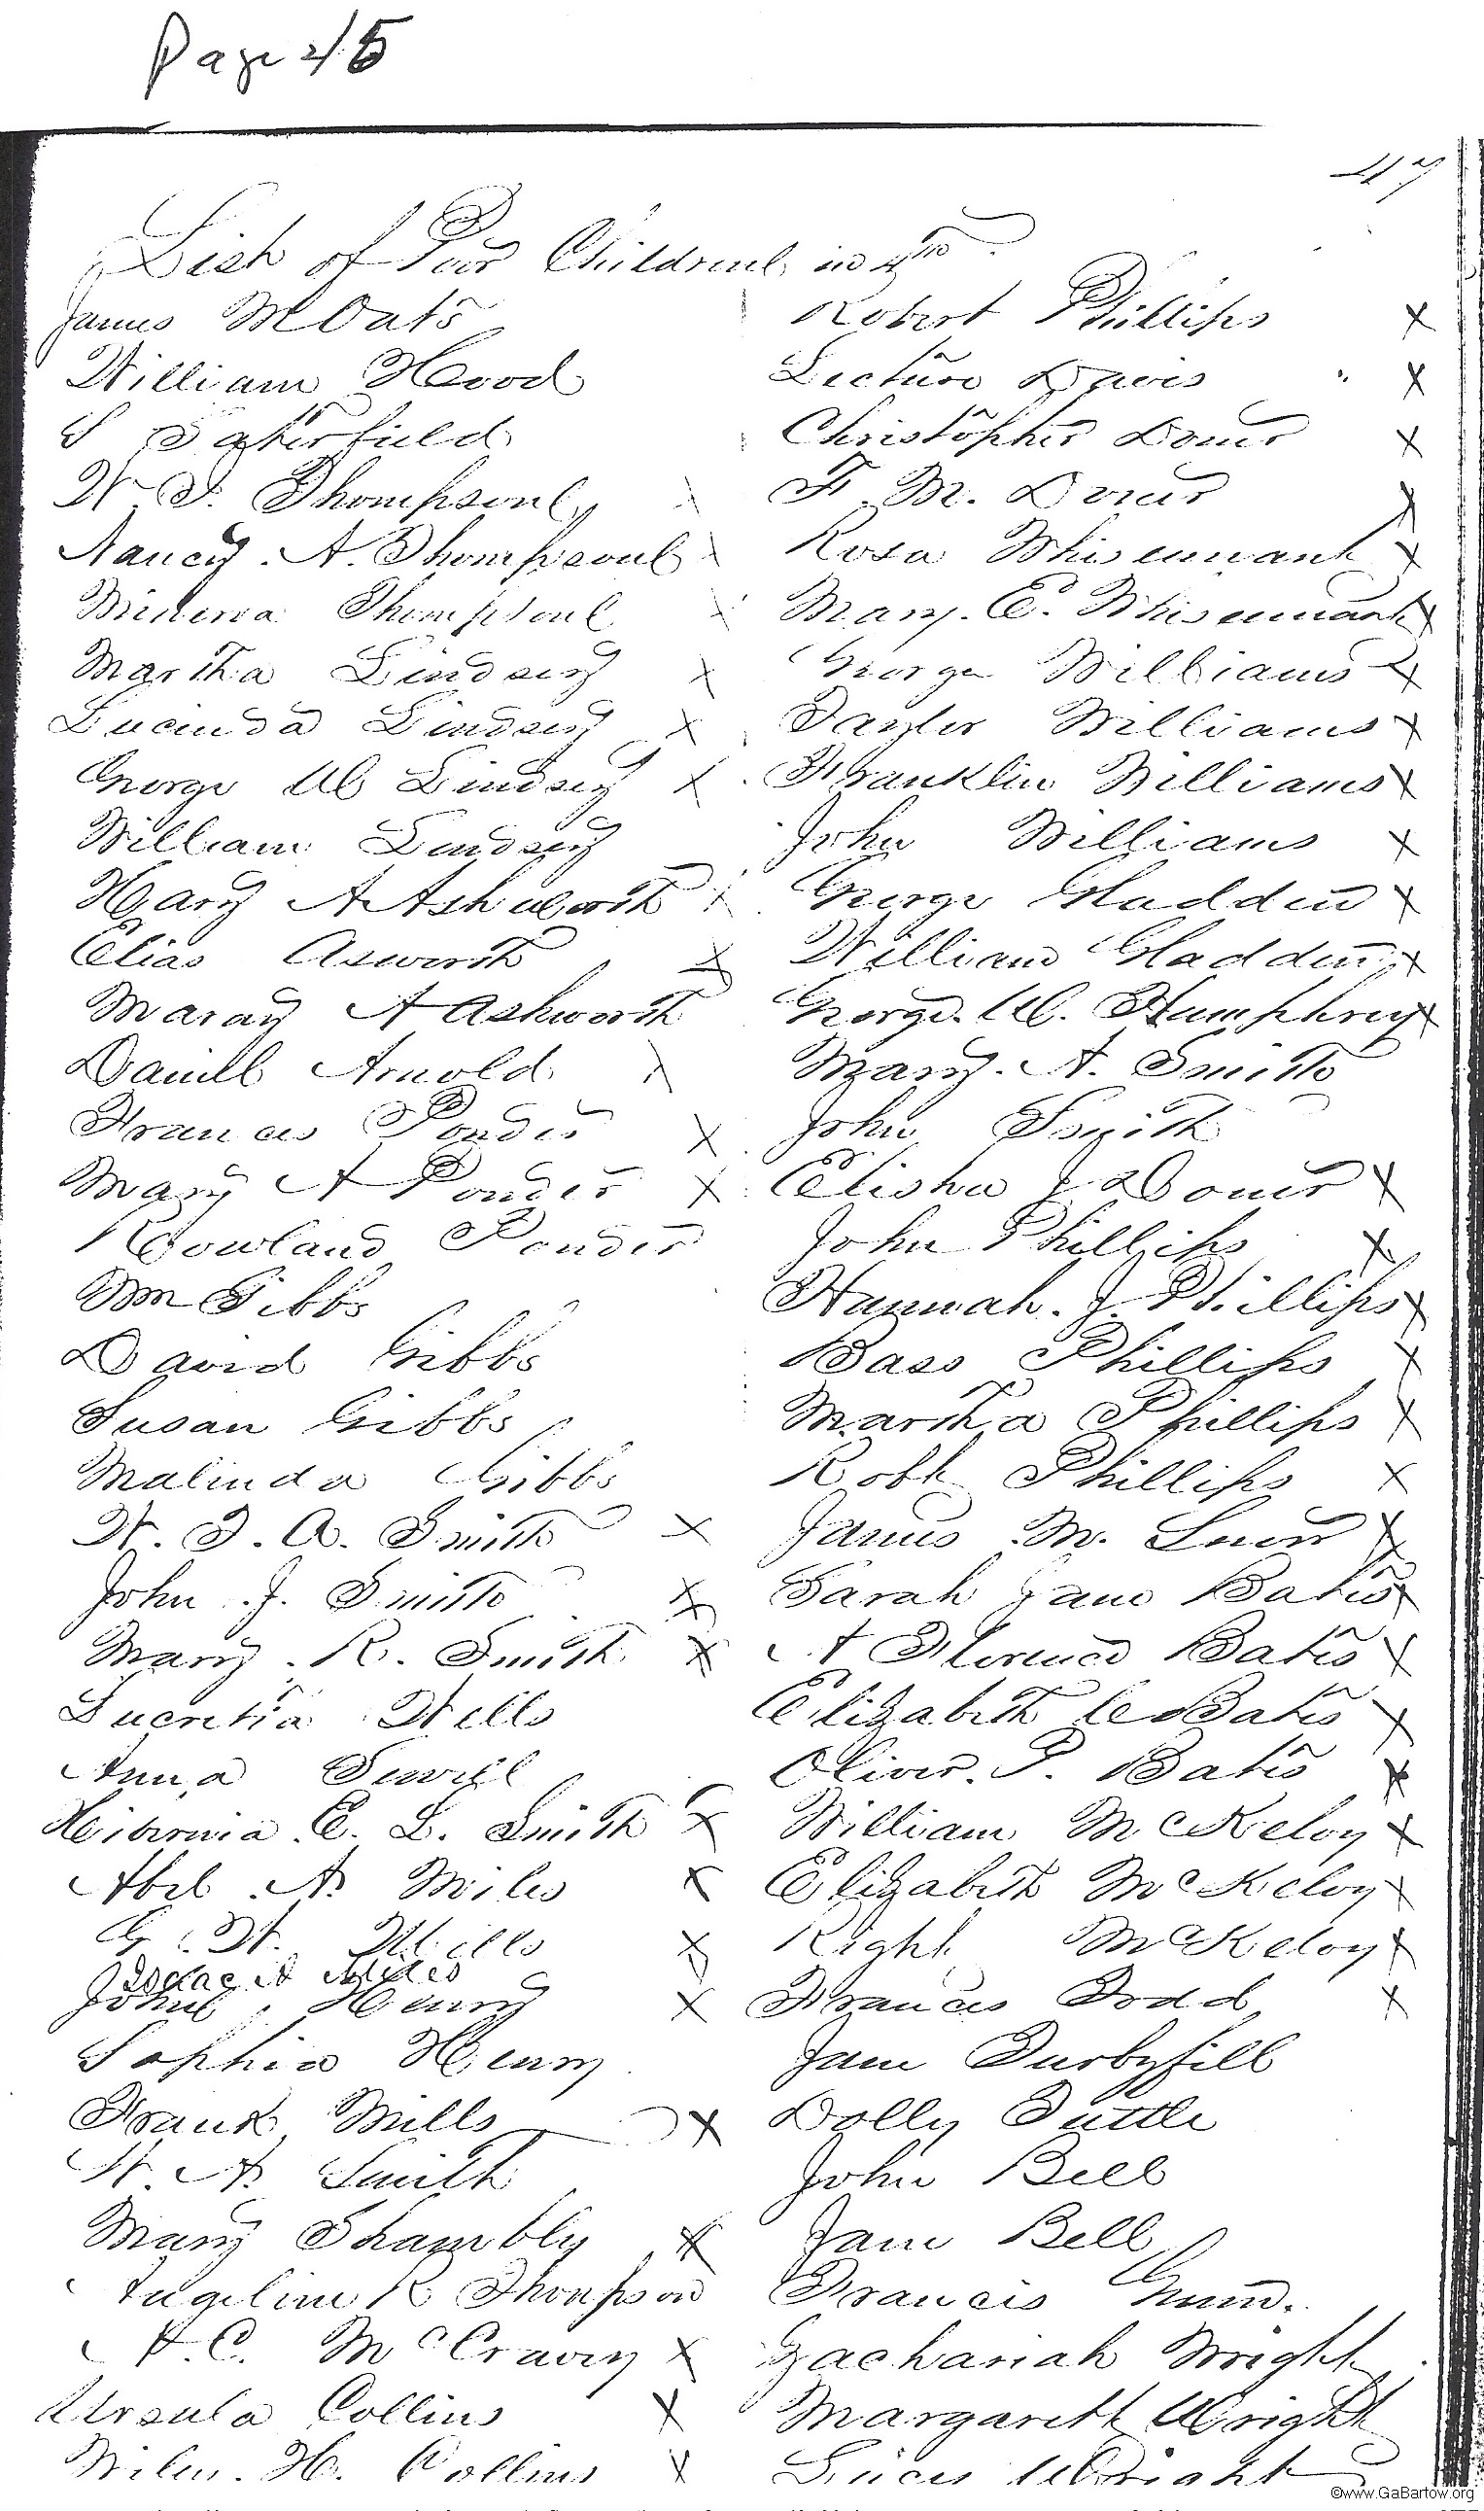 Page 45
47
List of Poor Children in 4th
James M Oats
William Hood
S Saterfield
W. T. Thompson
Nancy. A. Thompson
Minerva Thompson
Martha Lindsey
Lucinda Lindsey
George W Lindsey
William Lindsey
Mary A Ashworth
Elias Asworth
Maray A Ashworth
Daniel Arnold
Frances Ponder
Mary A Ponder
Rowland Ponder
Wm Gibbs
David Gibbs
Susan Gibbs
Malinda Gibbs
W. T. A. Smith
John J. Smith
Mary. R. Smith
Lucretia Wells
Anna
Hibernia E. L. Smith
Abel A. Miles
G. W. Mills
Isaac A Miles
John Henry
Sophia Henry
Frank Mills
W. A. Smith
Mary Shambly
Angeline R Thompson
A. C. McCravey
Ursula Collins
H. Collins
Robert Phillips
Davis
Christopher Doner
F. M. Doner
Rosa Whisennant
Mary. E. Whisennant
George Williams
Taylor Williams
Franklin Williams
John Williams
George Gladden
William Gladden
George. W. Humphrey
Mary. A. Smith
John Smith
Elisha J Doner
John Phillips
Hannah. J. Phillips
Bass Phillips
Martha Phillips
Robt Phillips
James M.
Sarah Jane Bates
A Florence Bates
Elizabeth C Bates
Oliver. P. Bates
William McKeloy
Elizabeth McKeloy
Right McKeloy
Frances Dodd
Jane Turbyfill
Dolly Tuttle
John Bell
Jane Bell
Francis Gunn.
Zachariah Wright
Margarett Wright
Wright
©www.GaBartow.org